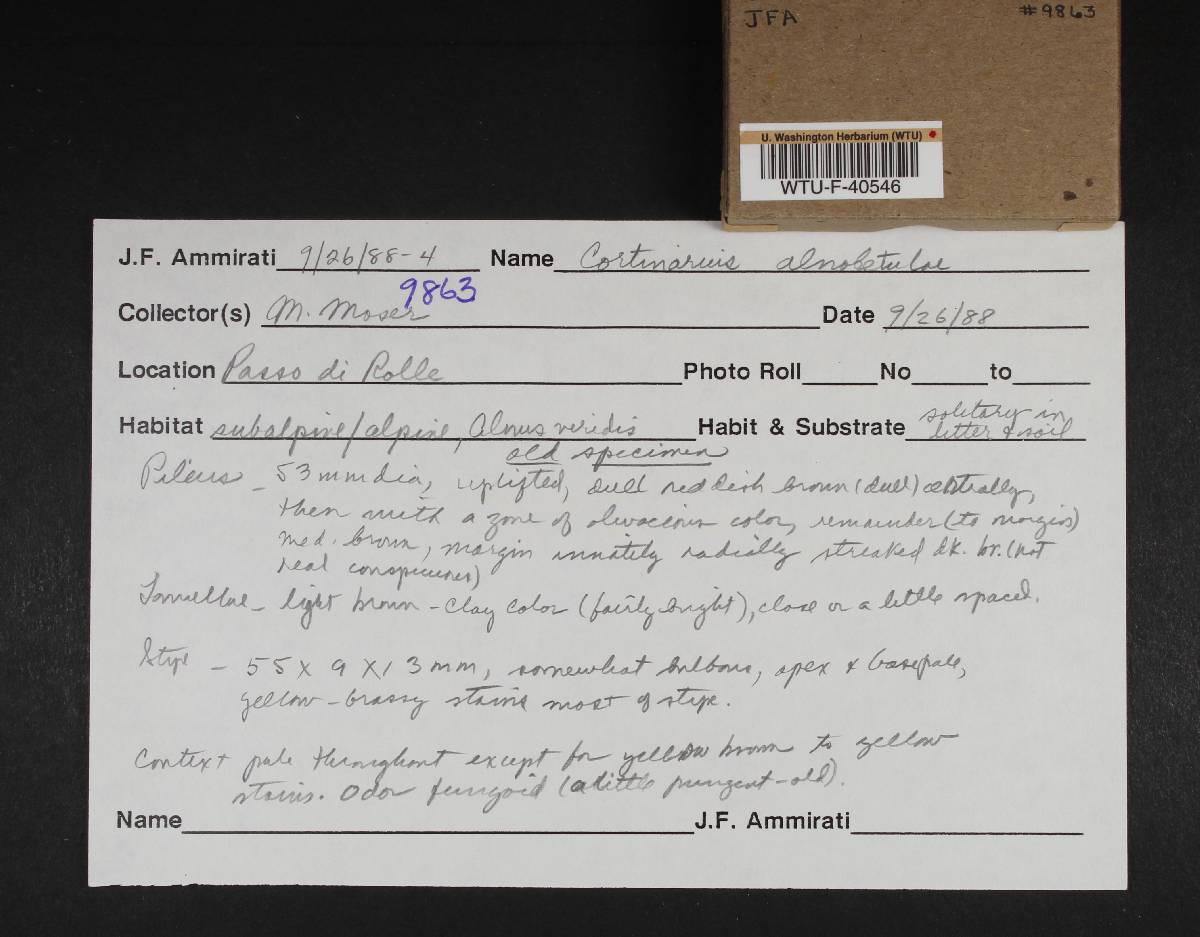 JFA #9863
U. Washington Herbarium (WTU)
WTU-F-40546
J.F. Ammirati 9/26/88-4 Name Cortinarius alnobetulae
9863
Collector(s) M. Moser Date 9/26/88
Location Passo di Rolle Photo Roll No to
Habitat subalpine/alpine, Alnus viridis Habit & Substrate solitary in
litter & soil
old specimen
Pileus - 53 mm dia, uplifted, dull reddish brown (dull) centrally,
then with a zone of olivaceous color, remainder (to margin)
med. brown, margin innately radially streaked dk. br. (not
real conspicuous)
Lamellae - light brown - clay color (fairly bright), close or a little spaced.
Stipe - 55 x 9 x 13 mm, somewhat bulbous, apex & base pale,
yellow-brassy stains most of stipe.
Context pale throughout except for yellow brown to yellow
stains. Odor fungoid (a little pungent-old).
Name J.F. Ammirati